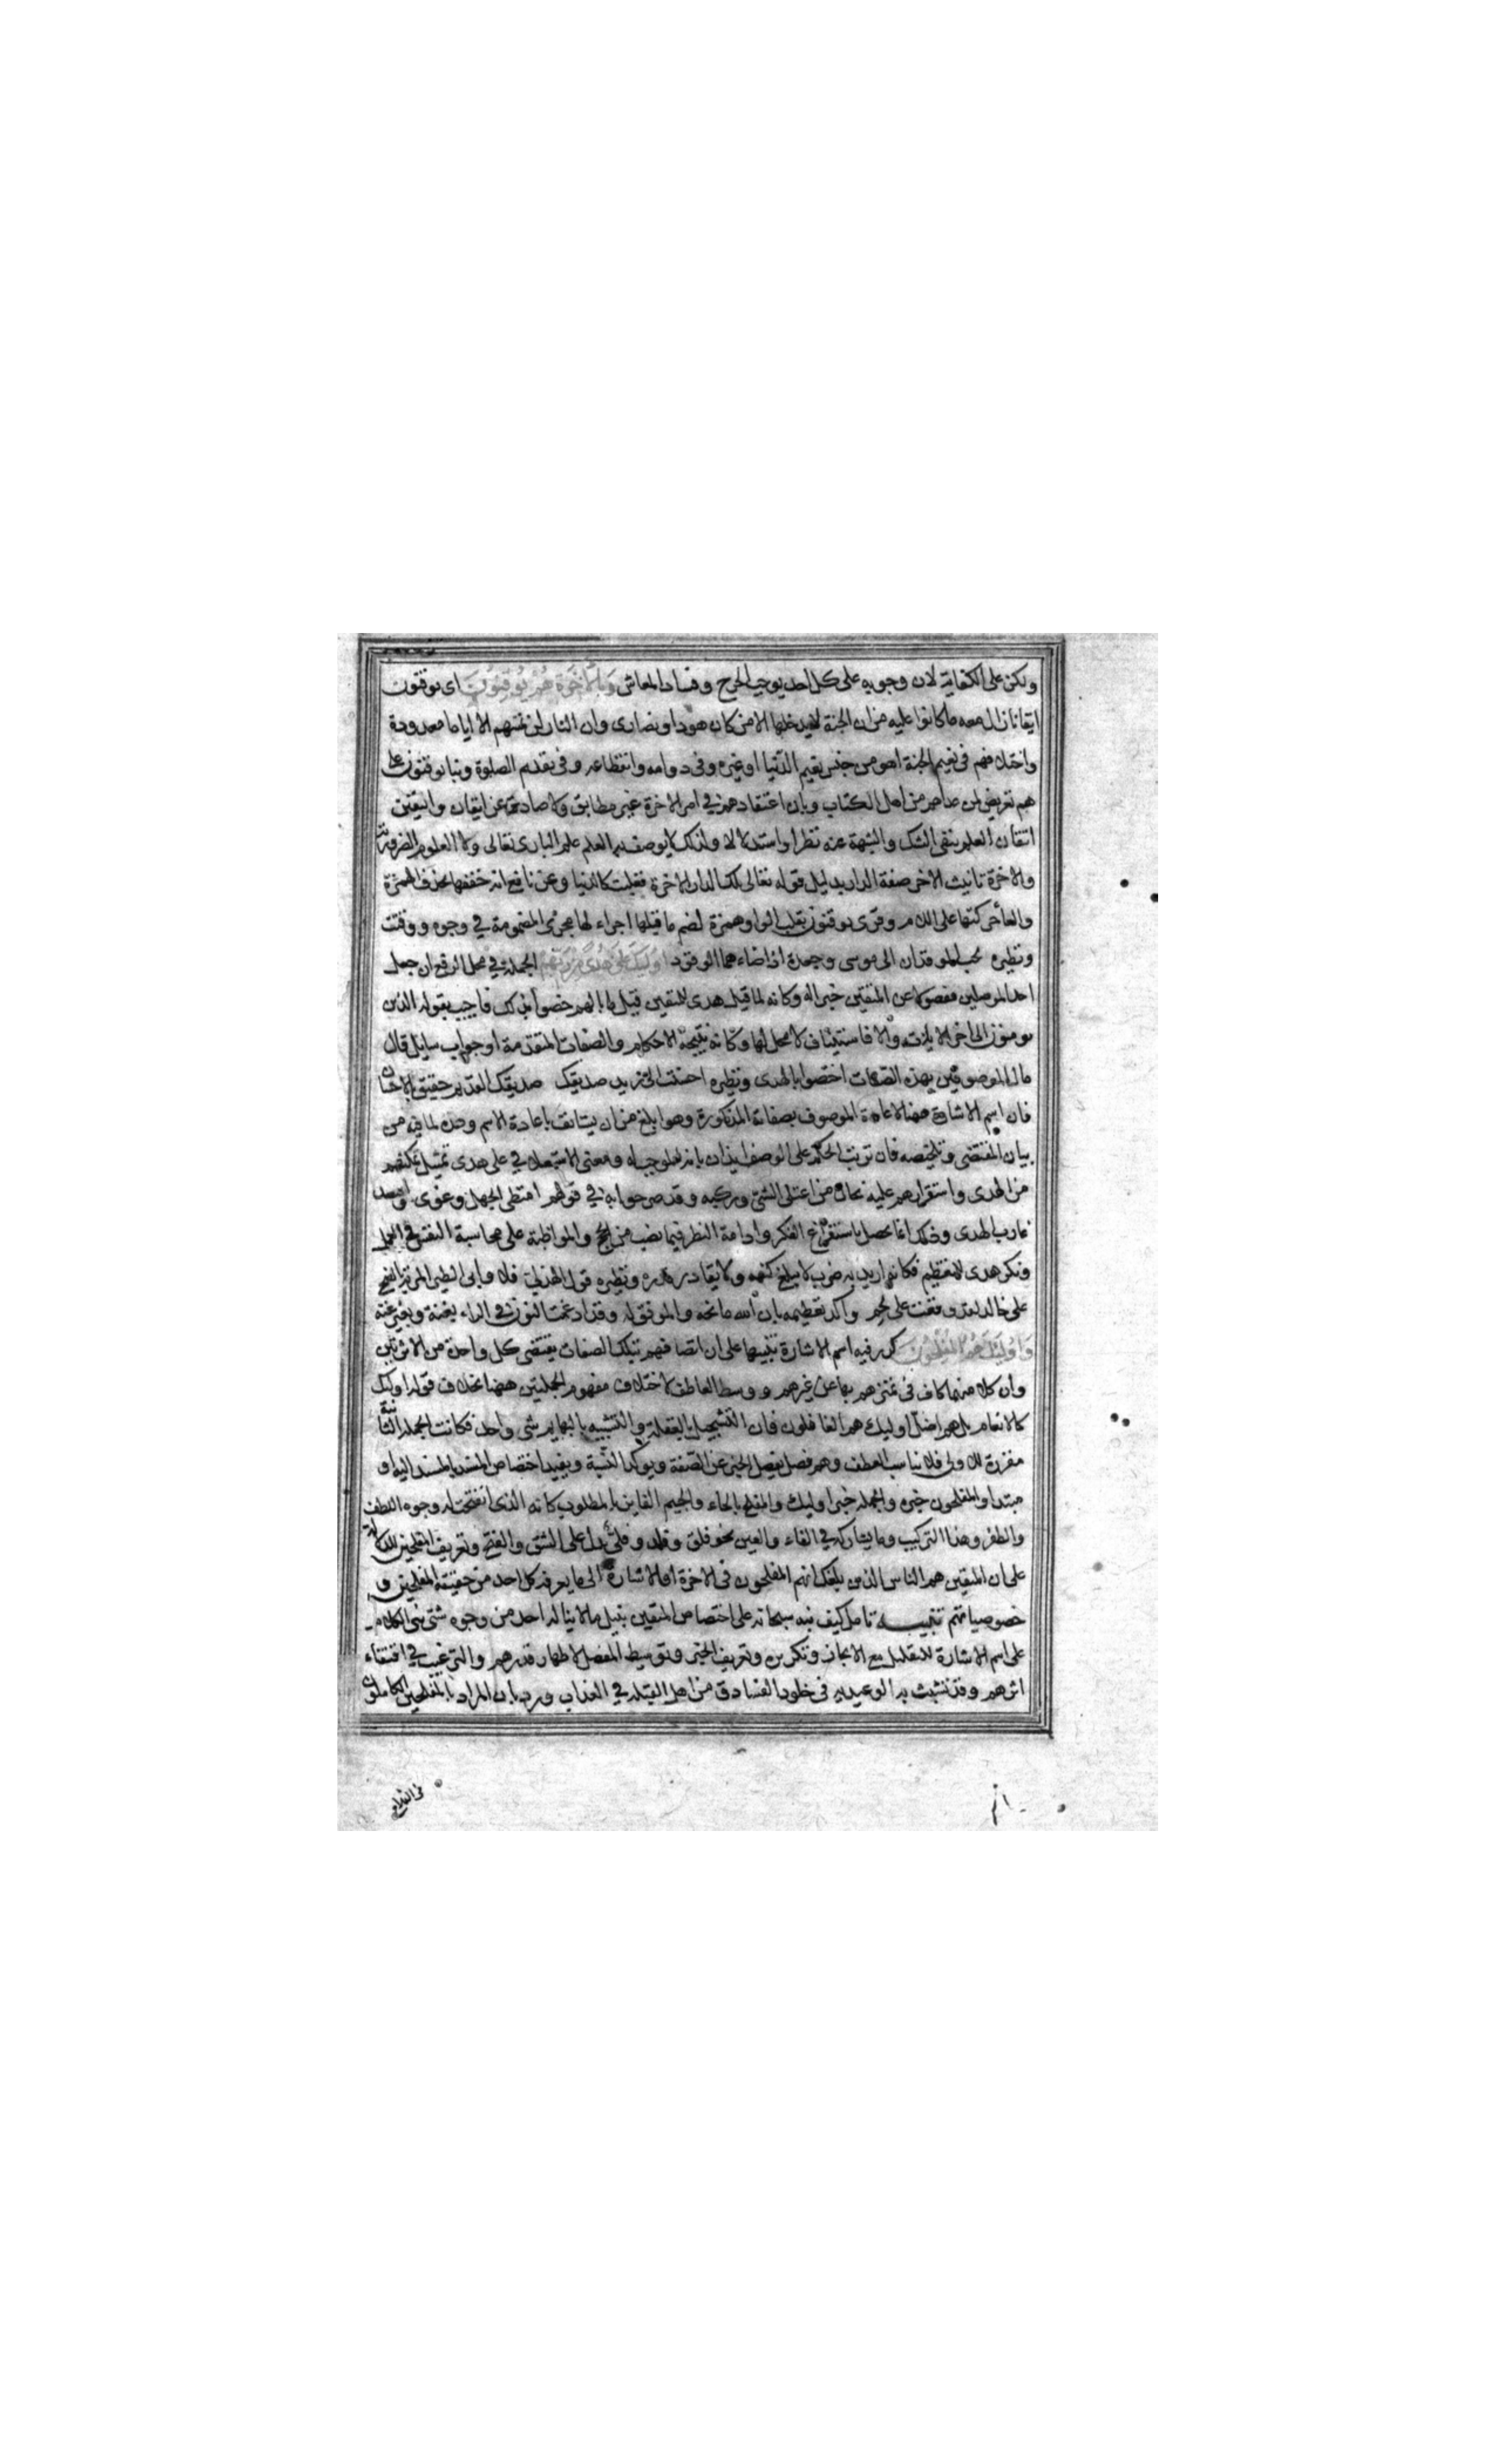 ولكن على الكفاية لان وجوبه على كل احد يوجب الحرج وفساد المعاش وبالاخرة هم يوقنون اى يوقنون
ايقانا زال معه ما كانوا عليه من ان الجنة لا يدخلها الا من كان هودا او نصارى وان النار لن تمسهم الا اياما معدودة
واختلافهم فى نعيم الجنة اهو من جنس نعيم الدنيا او غيره وفى دوامه وانقطاعه وفى تقديم الصلوة وبنا يوقنون على
هم تعريض لمن عداهم من اهل الكتاب وبان اعتقادهم فى امر الاخرة غير مطابق ولا صادر عن ايقان واليقين
اتقان العلم بنفى الشك والشبهة عنه نظرا واستدلالا ولذلك لا يوصف به العلم علم البارى تعالى ولا العلوم الضرورية
والاخرة تانيث الاخر صفة الدار بدليل قوله تعالى تلك الدار الاخرة فغلبت كالدنيا وعن نافع انه خففها بحذف الهمزة
والقأ حركتها على اللام وقرى يوقنون بقلب الواو همزة لضم ما قبلها اجراء لها مجرى المضمومة فى وجوه ووقتت
ونظيره لحب المؤقدان الى موسى وجعدة اذ اضاءهما الوقود اوليك على هدى من ربهم الجملة فى محل الرفع ان جعل
احد الموصلين مفصولا عن المتقين خبر له وكانه لما قيل هدى للمتقين قيل ما بالهم خصوا بذلك فاجيب بقوله الذين
يومنون الى اخر الايات والا فاستيناف لا محل لها وكانه نتيجة الاحكام والصفات المتقدمة او جواب سايل قال
ما للموصوفين بهذه الصفات اختصوا بالهدى ونظيره احسنت الى زيد صديقك صديقك القديم حقيق بالاحسان
فان اسم الاشارة ههنا كاعادة الموصوف بصفاته المذكورة وهو ابلغ من ان يستانف باعادة الاسم وحده لما فيه من
بيان المقتضى وتلخيصه فان ترتب الحكم على الوصف ايذان بانه الموجب له ومعنى الاستعلاء فى على هدى تمثيل تمكنهم
من الهدى واستقرارهم عليه بحال من اعتلى الشئ وركبه وقد صرحوا به فى قولهم امتطى الجهل وغوى واقتعد
غارب الهدى وذلك انما يحصل باستفراغ الفكر وادامة النظر فيما نصب من الحجج والمواظبة على محاسبة النفس فى العمل
ونكر هدى للتعظيم فكانه اريد به ضرب لا يبلغ كنهه ولا يقادر قدره ونظيره قول الهذلى فلا وابى الطير المربة بالضحى
على خالد لقد وقعت على لحم واكد تعظيمه بان الله مانحه والموفق له وقد ادغمت النون فى الراء بغنة وبغير غنة
واوليك هم المفلحون كرر فيه اسم الاشارة تنبيها على ان اتصافهم بتلك الصفات يقتضى كل واحدة من الاثرتين
وان كلا منهما كاف فى تميزهم بها عن غيرهم ووسط العاطف لاختلاف مفهوم الجملتين ههنا بخلاف قوله اوليك
كالانعام بل هم اضل اوليك هم الغافلون فان التسجيل بالغفلة والتشبيه بالبهايم شى واحد فكانت الجملة الثانية
مقررة للاولى فلا يناسب العطف وهم فصل يفصل الخبر عن الصفة ويوكد النسبة ويفيد اختصاص المسند بالمسند اليه او
مبتدا والمفلحون خبره والجملة خبر اوليك والمفلح بالحاء والجيم الفايز بالمطلوب كانه الذى انفتحت له وجوه اللطف
والظفر وهذا التركيب وما يشاركه فى الفاء والعين نحو فلق وفلذ وفلى يدل على الشق والفتح وتعريف المفلحين للدلالة
على ان المتقين هم الناس الذين بلغك انهم المفلحون فى الاخرة او الاشارة الى ما يعرفه كل احد من حقيقة المفلحين و
خصوصياتهم تنبيه تامل كيف نبه سبحانه على اختصاص المتقين بنيل ما لا يناله احد من وجوه شتى بنى الكلام
على اسم الاشارة للتعليل مع الايجاز وتكريره وتعريف الخبر وتوسيط الفصل لاظهار قدرهم والترغيب فى اقتفاء
اثرهم وقد تشبث به الوعيدية فى خلود الفساق من اهل القبلة فى العذاب ورد بان المراد بالمفلحين الكاملون
فى الفلاح